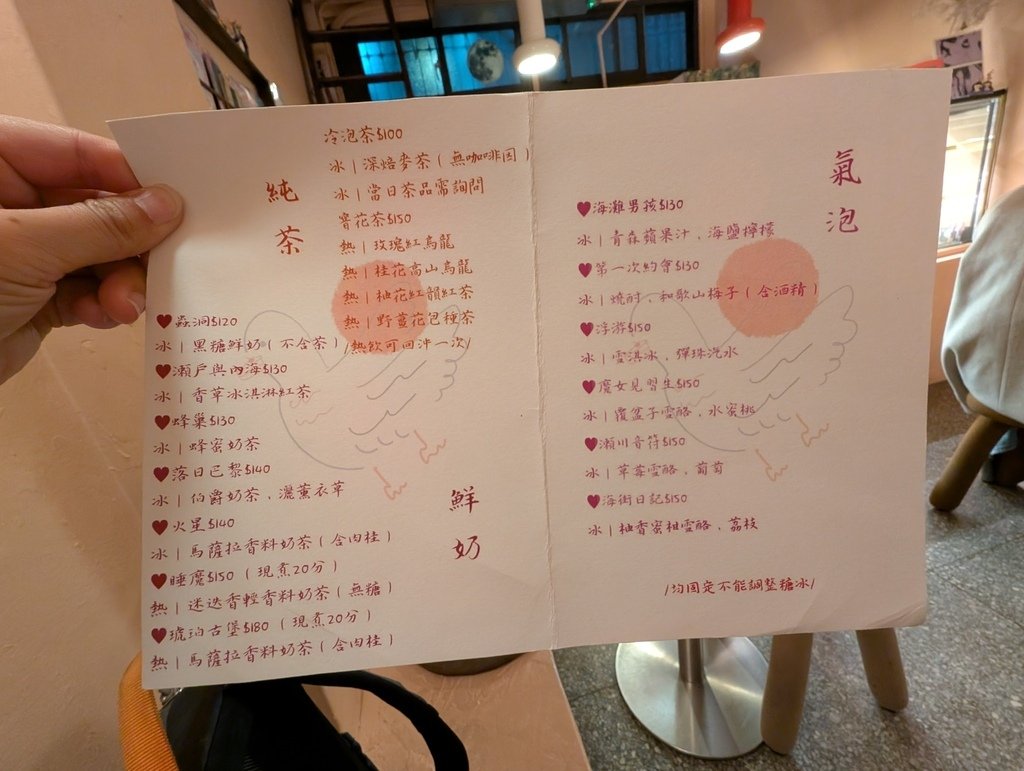 純茶
冷泡茶$100
冰 | 深焙麥茶 ( 無咖啡因 )
冰 | 當日茶品需詢問
窨花茶$150
熱 | 玫瑰紅烏龍
熱 | 桂花高山烏龍
熱 | 柚花紅韻紅茶
熱 | 野薑花包種茶
/熱飲可回沖一次/
鮮奶
♥蟲洞$120
冰 | 黑糖鮮奶 ( 不含茶 )
♥瀨戶與內海$130
冰 | 香草冰淇淋紅茶
♥蜂巢$130
冰 | 蜂蜜奶茶
♥落日巴黎$140
冰 | 伯爵奶茶、灑薰衣草
♥火星$140
冰 | 馬薩拉香料奶茶 ( 含肉桂 )
♥睡魔$150 ( 現煮20分 )
熱 | 迷迭香輕香料奶茶 ( 無糖 )
♥琥珀古堡$180 ( 現煮20分 )
熱 | 馬薩拉香料奶茶 ( 含肉桂 )
氣泡
♥海灘男孩$130
冰 | 青森蘋果汁、海鹽檸檬
♥第一次約會$130
冰 | 燒酎、和歌山梅子 ( 含酒精 )
♥浮游$150
冰 | 雪淇冰、彈珠汽水
♥魔女見習生$150
冰 | 覆盆子雪酪、水蜜桃
♥瀨川音符$150
冰 | 草莓雪酪、葡萄
♥海街日記$150
冰 | 柚香蜜柑雪酪、荔枝
/均固定不能調整糖冰/